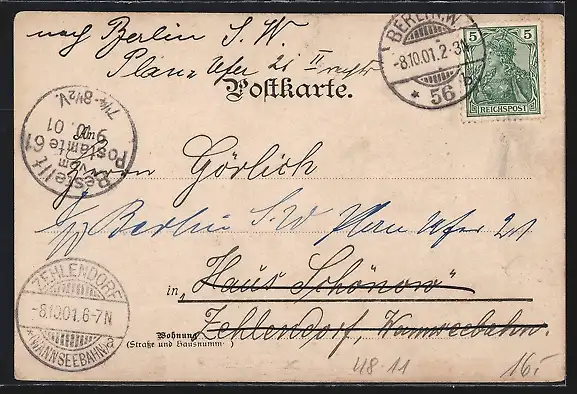 nach Berlin S. W.
Plan Ufer 21 II rechts
Postkarte.
BERLIN.W.
-8.10.01.2-3N.
* 56
5 5
REICHSPOST
Bestellt
vom
Postamte 61
9. 01
7¼-8½V.
An
Herrn Görlich
Berlin S. W Plan Ufer 21
in „Haus Schönow"
Zehlendorf, Wannseebahn.
Wohnung
(Straße und Hausnummer)
ZEHLENDORF
-8.10.01.6-7N
*(WANNSEEBAHN)a
48-11
16.-